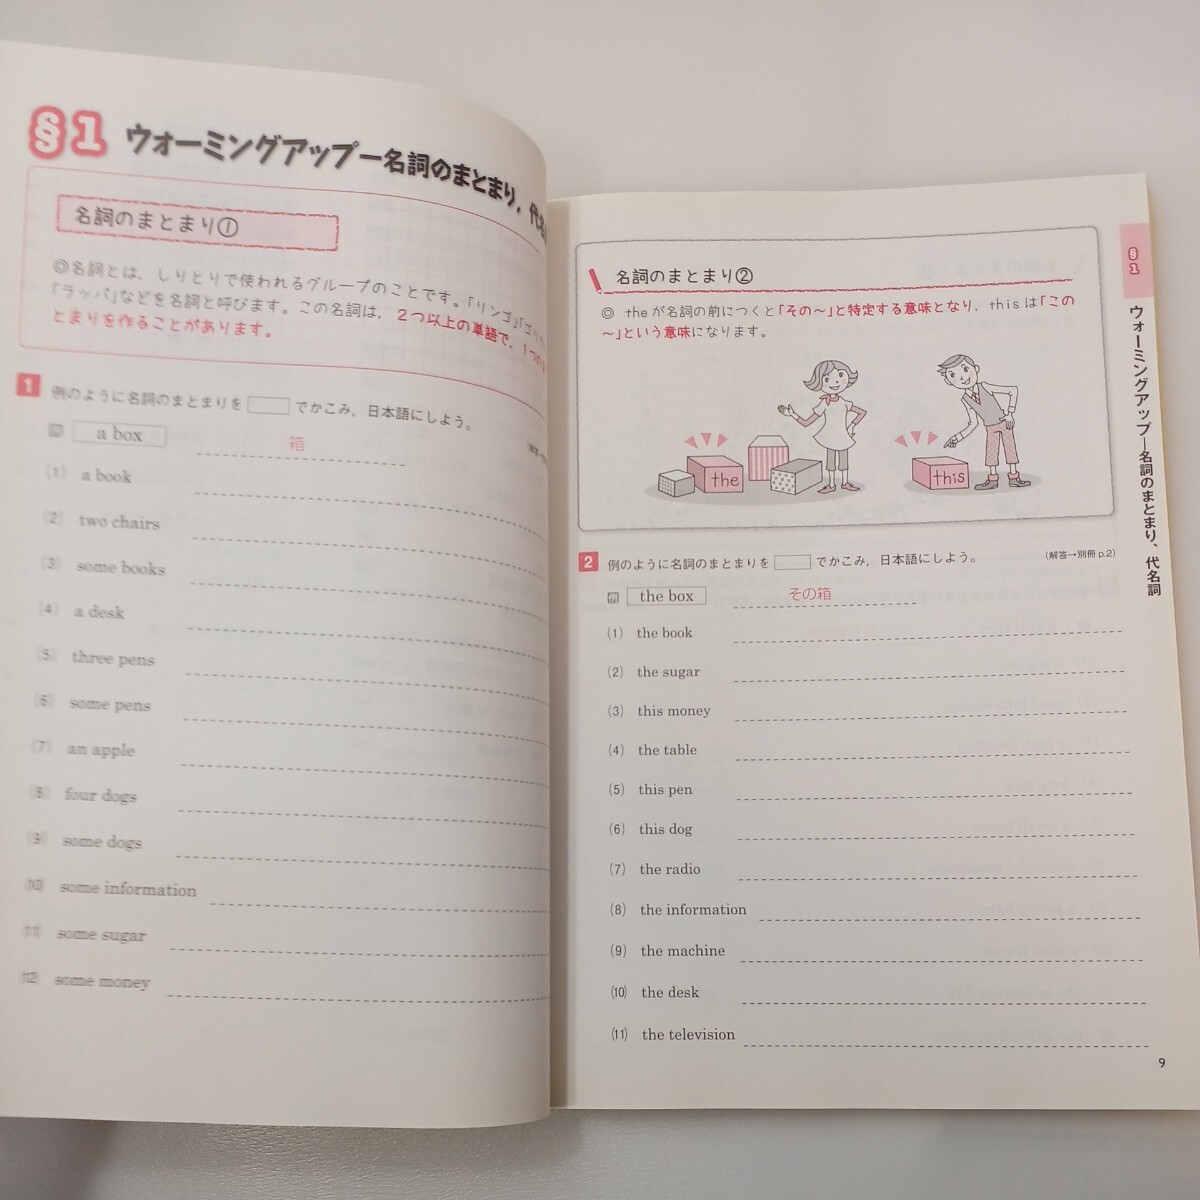 §1 ウォーミングアップ―名詞のまとまり，代名
名詞のまとまり①
◎名詞とは，しりとりで使われるグループのことです。「リンゴ」「ゴリ
「ラッパ」などを名詞と呼びます。この名詞は，２つ以上の単語で，1つの
とまりを作ることがあります。
1 例のように名詞のまとまりを でかこみ，日本語にしよう。
例 a box 箱
(1) a book
(2) two chairs
(3) some books
(4) a desk
(5) three pens
(6) some pens
(7) an apple
(8) four dogs
(9) some dogs
(10) some information
(11) some sugar
(12) some money
名詞のまとまり②
◎ theが名詞の前につくと「その～」と特定する意味となり，thisは「この
～」という意味になります。
the
this
2 例のように名詞のまとまりを でかこみ，日本語にしよう。 (解答→別冊 p.2)
例 the box その箱
(1) the book
(2) the sugar
(3) this money
(4) the table
(5) this pen
(6) this dog
(7) the radio
(8) the information
(9) the machine
(10) the desk
(11) the television
§1
ウォーミングアップ―名詞のまとまり、代名詞
9